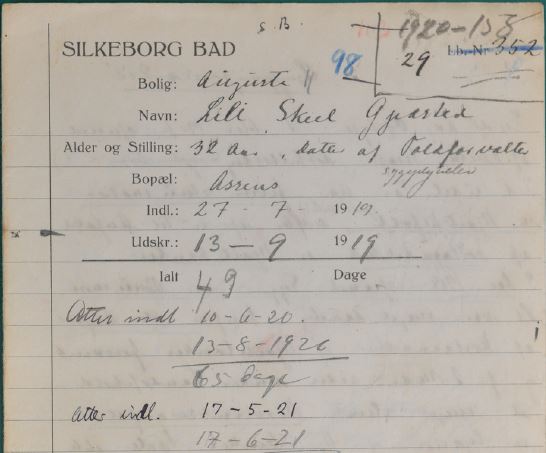 S.B.
1920-153
SILKEBORG BAD
98
29
Lb. Nr. 352
Bolig: Auguste II
Navn: Lill Skeel Gjørsted
Alder og Stilling: 32 Aar, datter af Toldforvalter
sygeplejerske
Bopæl: Assens
Indl.: 27 - 7 - 1919.
Udskr.: 13 - 9 1919
Ialt 49 Dage
Atter indl 10-6-20.
13-8-1920
65 Dage
Atter indl. 17-5-21
17-6-21